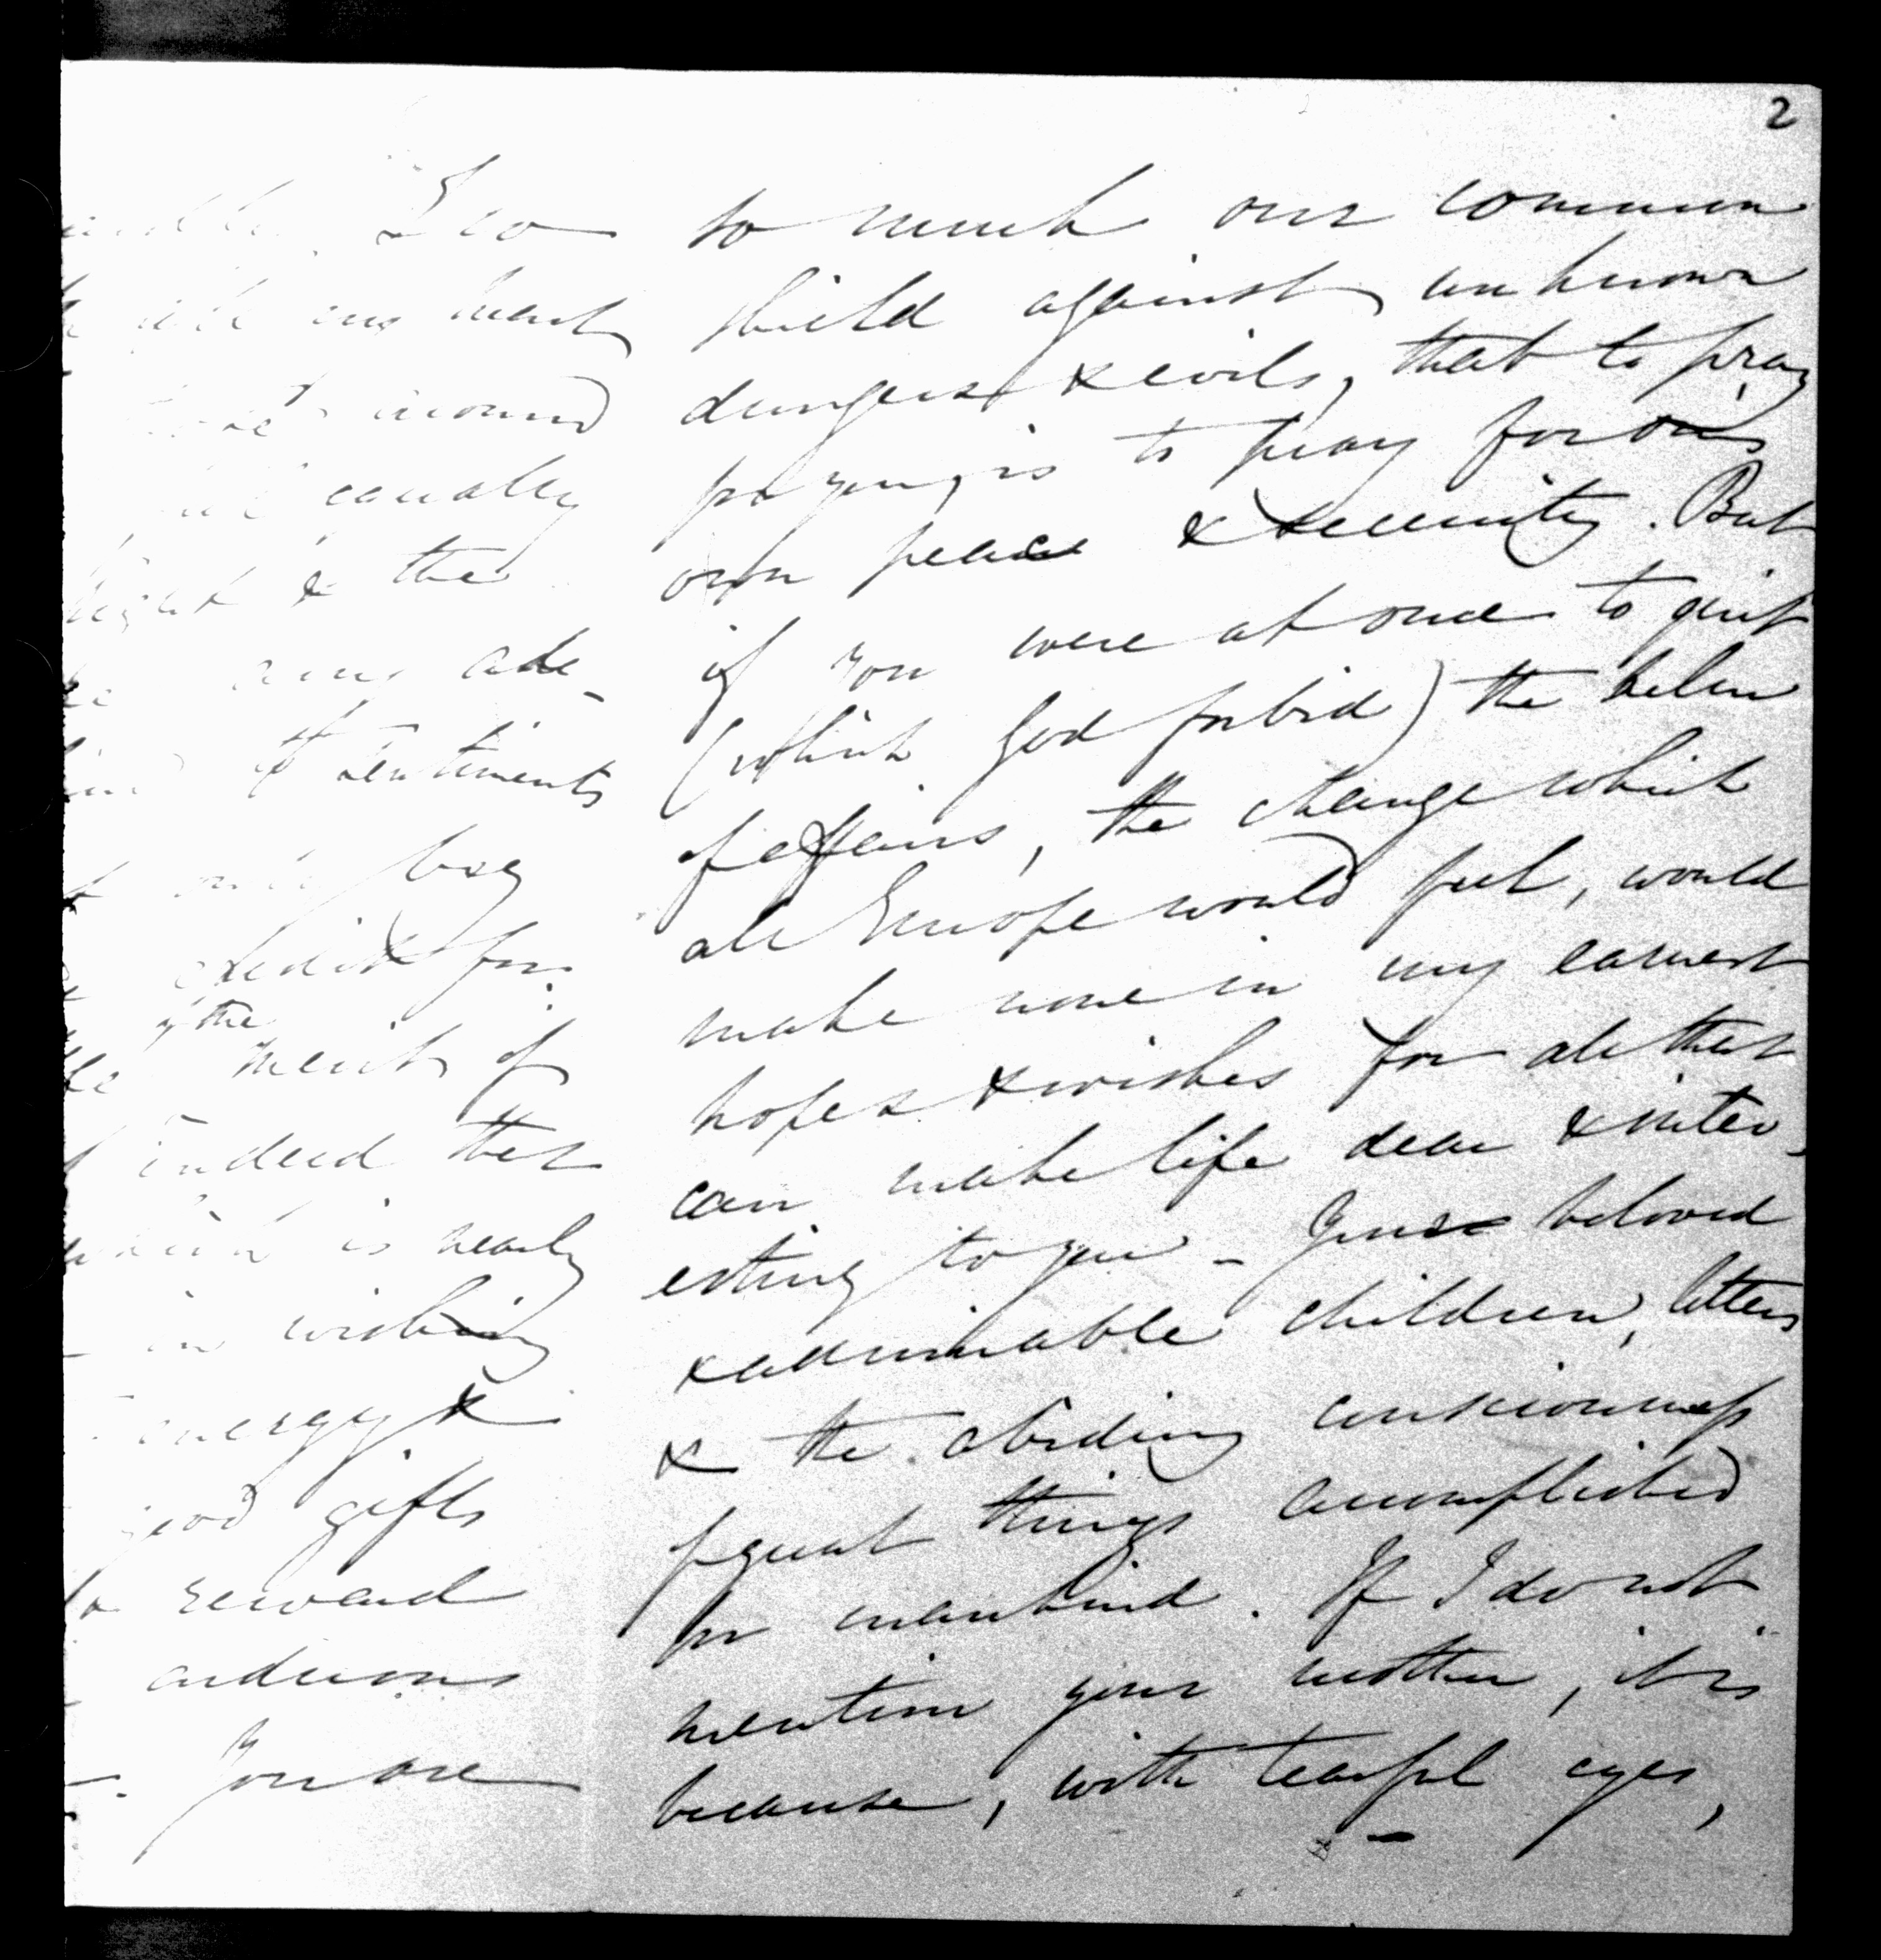 2
I do
my heart
around
equally
& the
any ade-
to sentiments
credit for
of the
merit of
indeed that
which is nearly
in wishing
energy &
good gifts
to reward
arduous
You are
so much our common
shield against unknown
dangers & evils, that to pray
for you, is to pray for our
own peace & security. But
if you were at once to quit
(which God forbid) the helm
of affairs, the change which
all Europe would feel, would
make none in my earnest
hopes & wishes for all that
can make life dear & inter-
esting to you - Your beloved
& admirable children, letters
& the abiding consciousness
of great things accomplished
for mankind. If I do not
mention your mother, it is
because, with tearful eyes,